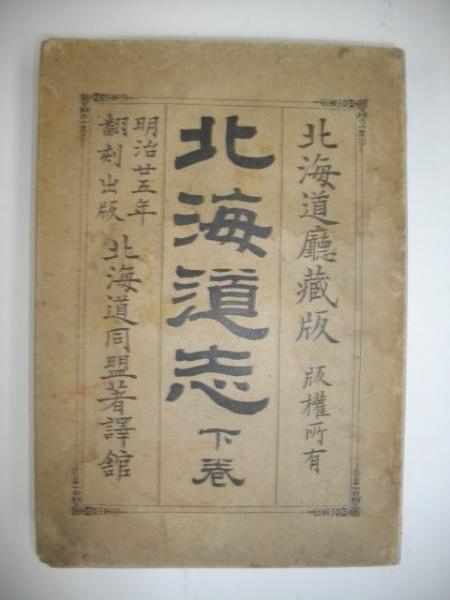 北海道廳藏版 版權所有
北海道志 下卷
明治廿五年
翻刻出版
北海道同盟著譯舘